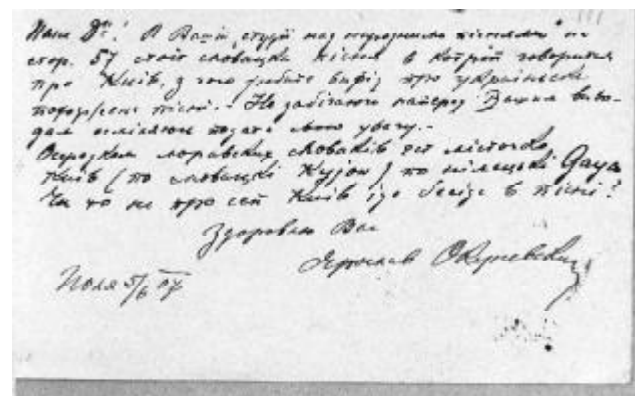 Пане Др! В Вашій студії над народними піснями на
стор. 57 стоїт словацка пісня в котрій говорится
про Київ, з чого робите вивід про українське
походженє пісні. - Не забігаючи наперед Вашим виво-
дам осмілююсь подати мою увагу. -
Осередком моравских словаків єст місточко
Київ (по словацкі Kyjow) по німецькі Gaya
Чи то не про сей Київ іде бесіда в пісні?
Здоровлю Вас
Ярослав Окуневский
Поля 5/6 07